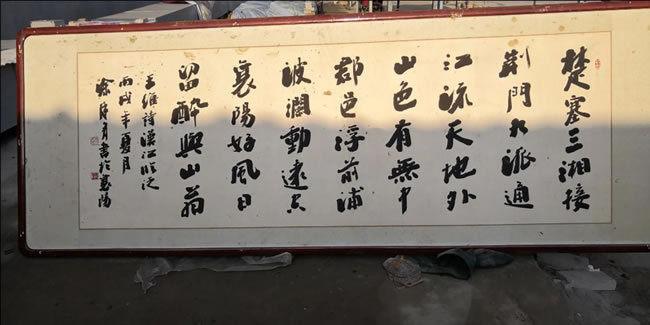 楚塞三湘接
荆門九派通
江流天地外
山色有無中
郡邑浮前浦
波瀾動遠空
襄陽好風日
留醉與山翁
王維詩漢江臨泛
丙戌年夏月
書於襄陽